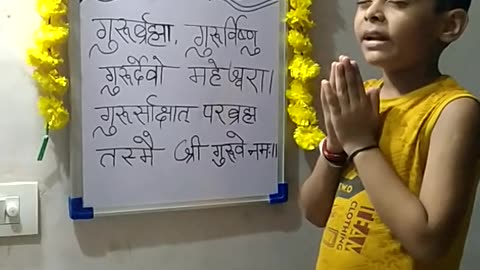 गुरुर्ब्रह्मा, गुरुर्विष्णु
गुरुर्देवो महेश्वरा।
गुरुर्साक्षात परब्रह्म
तस्मै श्री गुरुवे नमः॥
CLOTHING